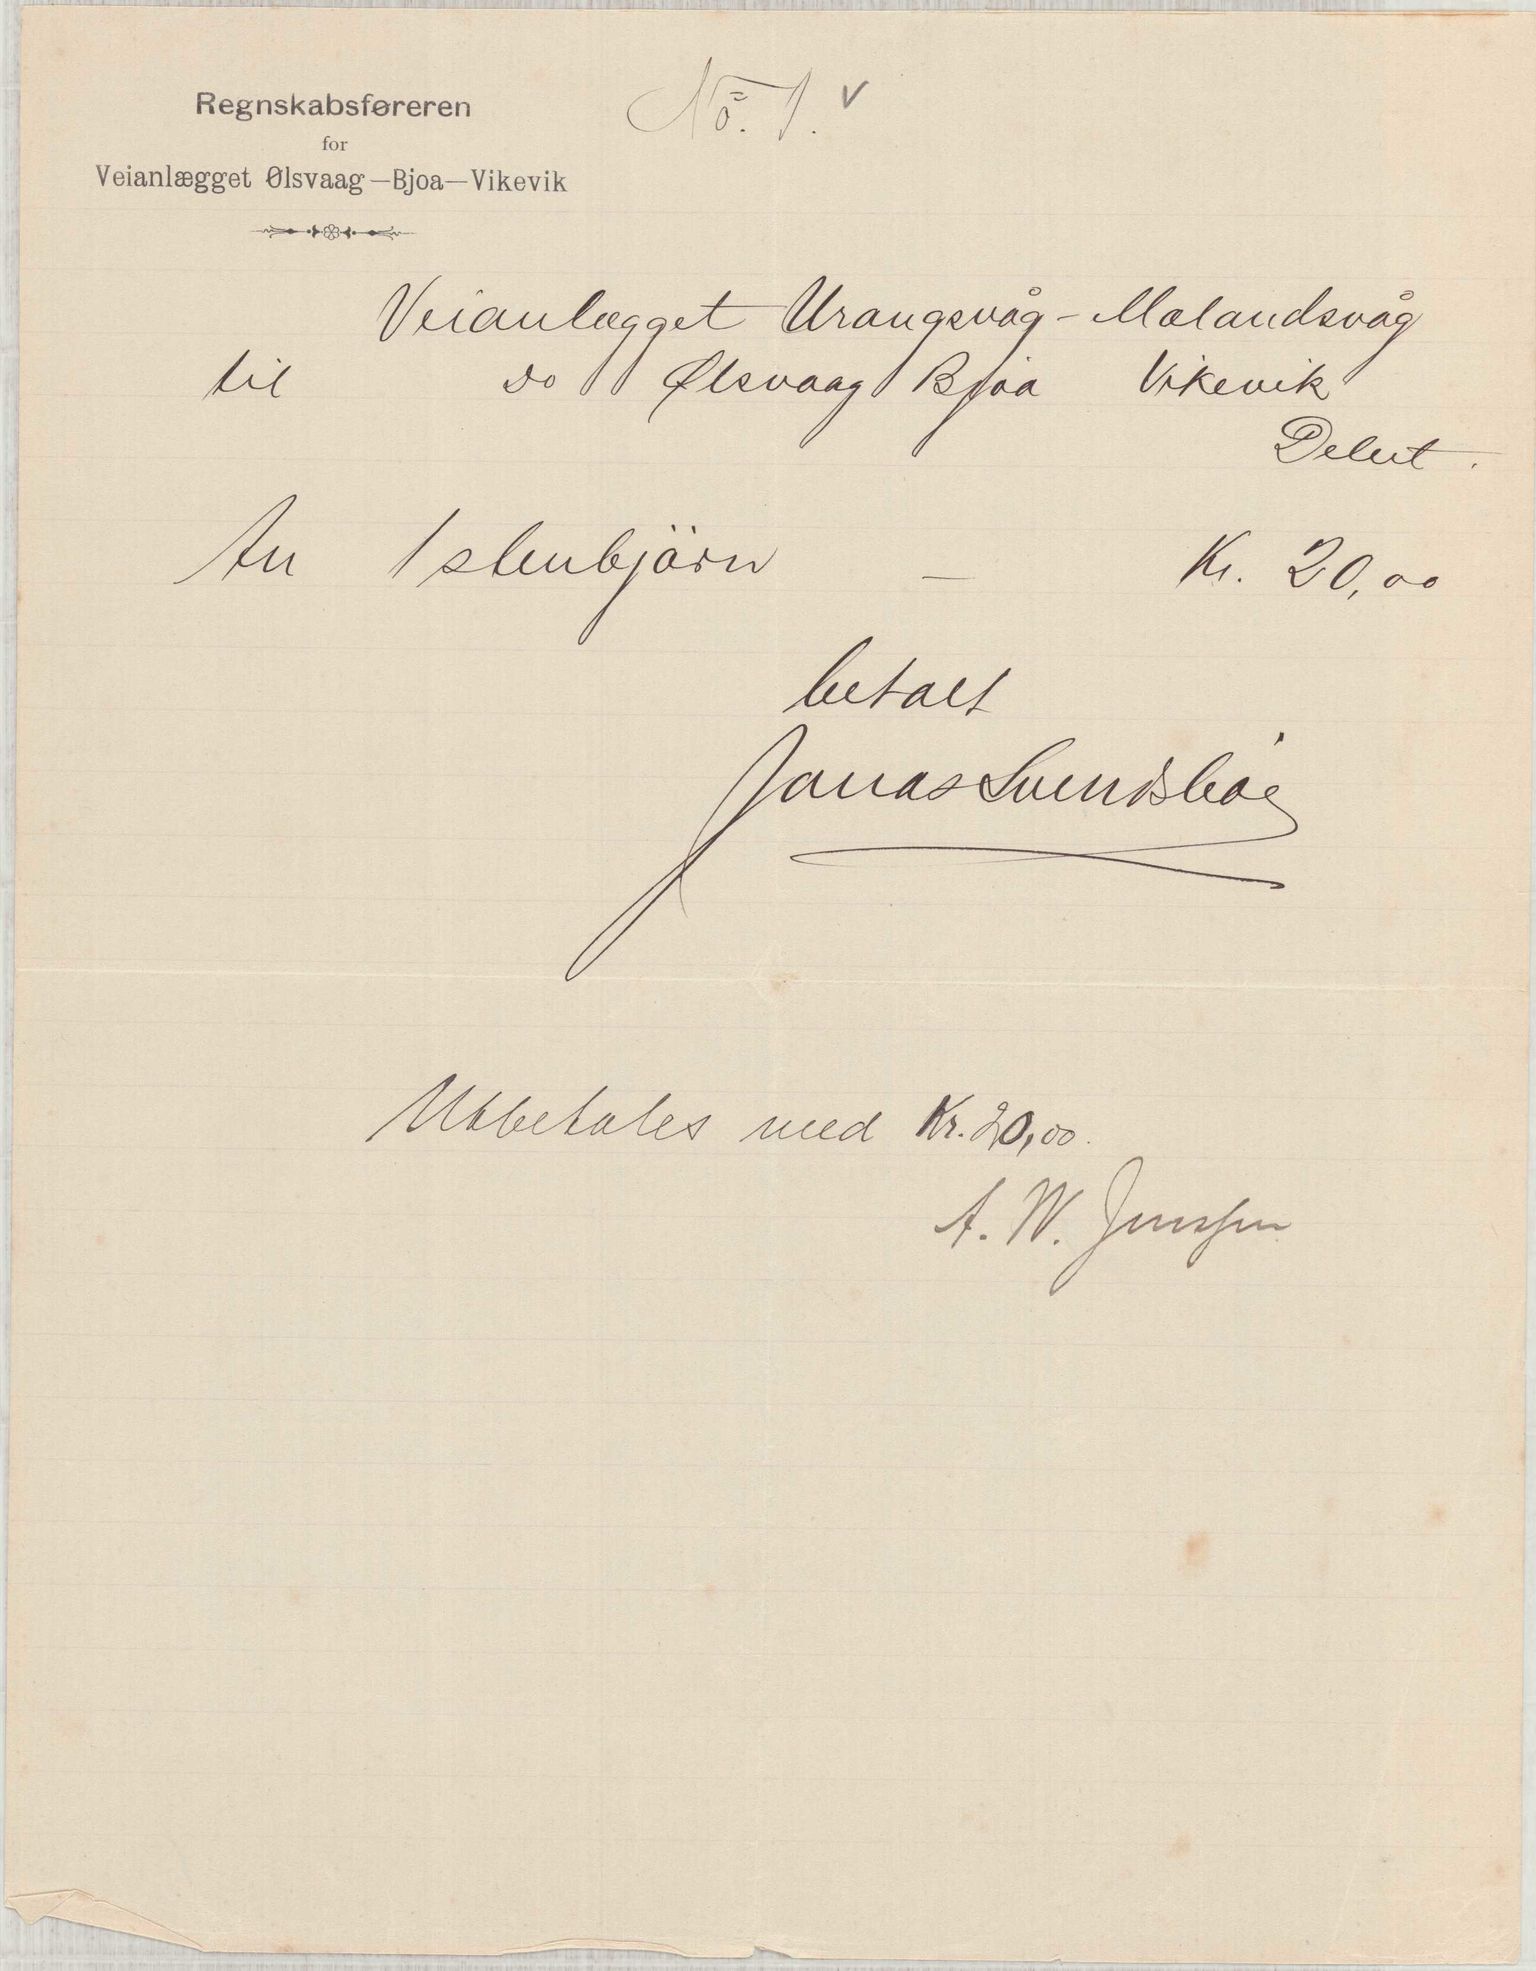 Regnskabsføreren
No. 1. v
for
Veianlægget Ølsvaag—Bjoa—Vikevik
Veianlægget Urangsvåg - Mælandsvåg
til do Ølsvaag Bjoa Vikevik
Debet.
An 1 stenbjörn — Kr. 20,00
betalt
Jonas Svendsbøe
Utbetales med Kr. 20,00.
A. W. Jenssen